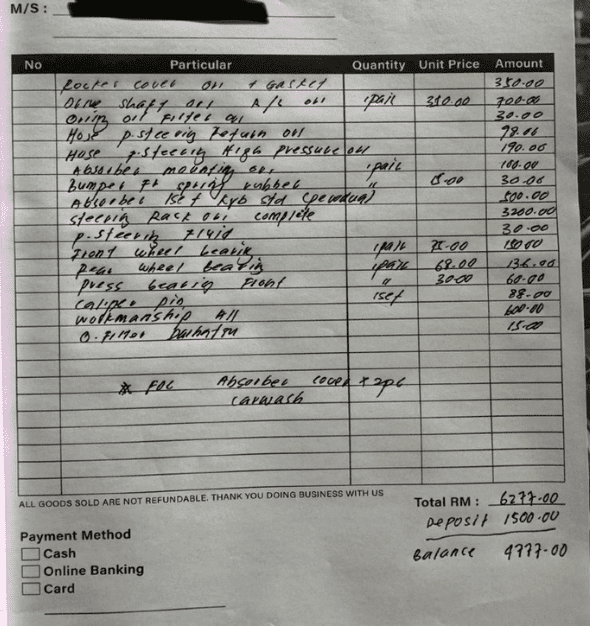 M/S :
No Particular Quantity Unit Price Amount
Rocker cover ori + Gasket 350.00
Drive shaft ori A/C ori 1pair 350.00 700.00
Oring oil filter ori 30.00
Hose p.steering Return ori 98.00
Hose p.steering High pressure ori 190.00
Absorber mounting ori 1pair 100.00
Bumper Ft spring rubber " 30.00
Absorber 1set kyb std (perodua) 500.00
Steering Rack ori complete 3200.00
p.steering Fluid 30.00
Front wheel bearing 1pair 75.00 150.00
Rear wheel bearing 1pair 68.00 136.00
press bearing Front " 30.00 60.00
caliper pin 1set 88.00
workmanship All 600.00
O.Filter 15.00
* FOC Absorber cover x 2pc
carwash
ALL GOODS SOLD ARE NOT REFUNDABLE. THANK YOU DOING BUSINESS WITH US
Total RM : 6277.00
Deposit 1500.00
Balance 4777.00
Payment Method
Cash
Online Banking
Card